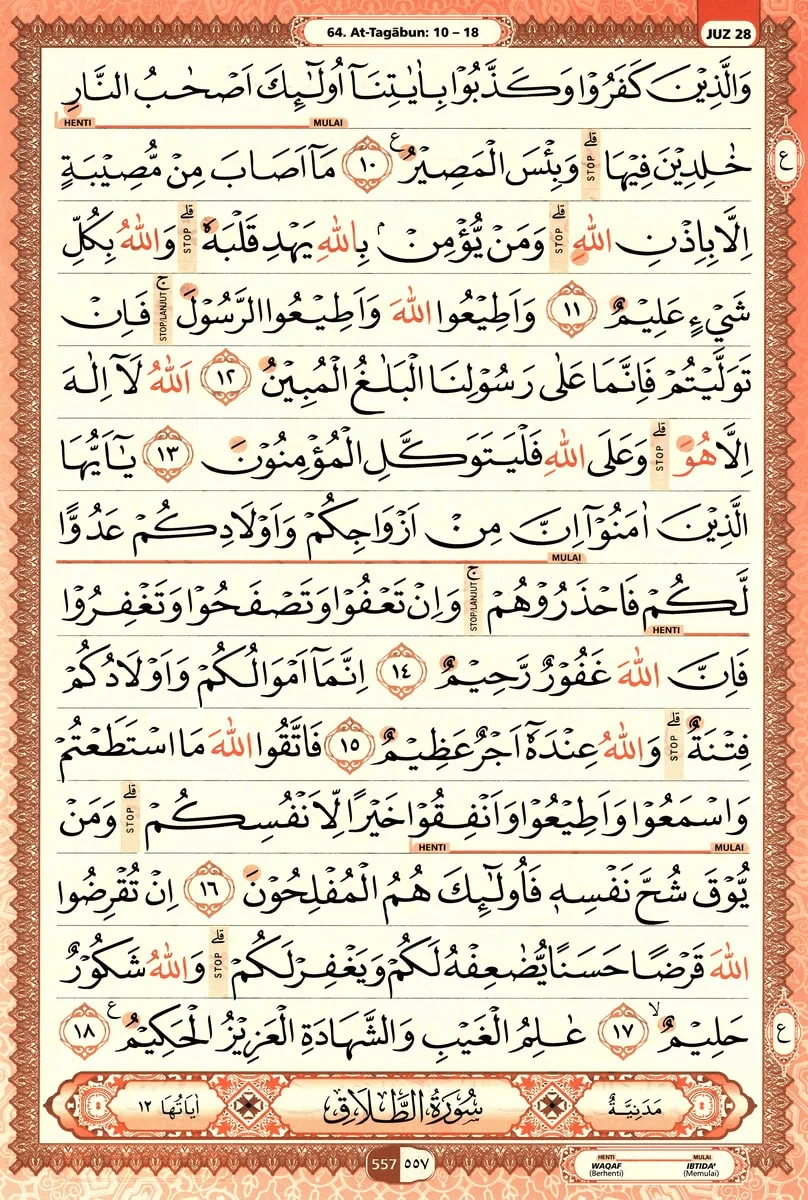 64. At-Tagābun: 10 – 18
JUZ 28
وَالَّذِيْنَ كَفَرُوْا وَكَذَّبُوْا بِاٰيٰتِنَآ اُولٰۤىِٕكَ اَصْحٰبُ النَّارِ
HENTI MULAI
خٰلِدِيْنَ فِيْهَا ۗ STOP وَبِئْسَ الْمَصِيْرُ ࣖ ١٠ مَآ اَصَابَ مِنْ مُّصِيْبَةٍ
ع
اِلَّا بِاِذْنِ اللّٰهِ ۗ STOP وَمَنْ يُّؤْمِنْۢ بِاللّٰهِ يَهْدِ قَلْبَهٗ ۗ STOP وَاللّٰهُ بِكُلِّ
شَيْءٍ عَلِيْمٌ ١١ وَاَطِيْعُوا اللّٰهَ وَاَطِيْعُوا الرَّسُوْلَ ۚ STOP/LANJUT فَاِنْ
تَوَلَّيْتُمْ فَاِنَّمَا عَلٰى رَسُوْلِنَا الْبَلٰغُ الْمُبِيْنُ ١٢ اَللّٰهُ لَآ اِلٰهَ
اِلَّا هُوَ ۗ STOP وَعَلَى اللّٰهِ فَلْيَتَوَكَّلِ الْمُؤْمِنُوْنَ ١٣ يٰٓاَيُّهَا
الَّذِيْنَ اٰمَنُوْٓا اِنَّ مِنْ اَزْوَاجِكُمْ وَاَوْلَادِكُمْ عَدُوًّا
MULAI
لَّكُمْ فَاحْذَرُوْهُمْ ۚ STOP/LANJUT وَاِنْ تَعْفُوْا وَتَصْفَحُوْا وَتَغْفِرُوْا
HENTI
فَاِنَّ اللّٰهَ غَفُوْرٌ رَّحِيْمٌ ١٤ اِنَّمَآ اَمْوَالُكُمْ وَاَوْلَادُكُمْ
فِتْنَةٌ ۗ STOP وَاللّٰهُ عِنْدَهٗٓ اَجْرٌ عَظِيْمٌ ١٥ فَاتَّقُوا اللّٰهَ مَا اسْتَطَعْتُمْ
وَاسْمَعُوْا وَاَطِيْعُوْا وَاَنْفِقُوْا خَيْرًا لِّاَنْفُسِكُمْ ۗ STOP وَمَنْ
HENTI MULAI
يُّوْقَ شُحَّ نَفْسِهٖ فَاُولٰۤىِٕكَ هُمُ الْمُفْلِحُوْنَ ١٦ اِنْ تُقْرِضُوا
اللّٰهَ قَرْضًا حَسَنًا يُّضٰعِفْهُ لَكُمْ وَيَغْفِرْ لَكُمْ ۗ STOP وَاللّٰهُ شَكُوْرٌ
حَلِيْمٌ ۙ ١٧ عٰلِمُ الْغَيْبِ وَالشَّهَادَةِ الْعَزِيْزُ الْحَكِيْمُ ࣖ ١٨
ع
مَدَنِيَّةٌ سُوْرَةُ الطَّلَاقِ اٰيَاتُهَا ١٢
557 ٥٥٧
HENTI MULAI
WAQAF IBTIDA'
(Berhenti) (Memulai)